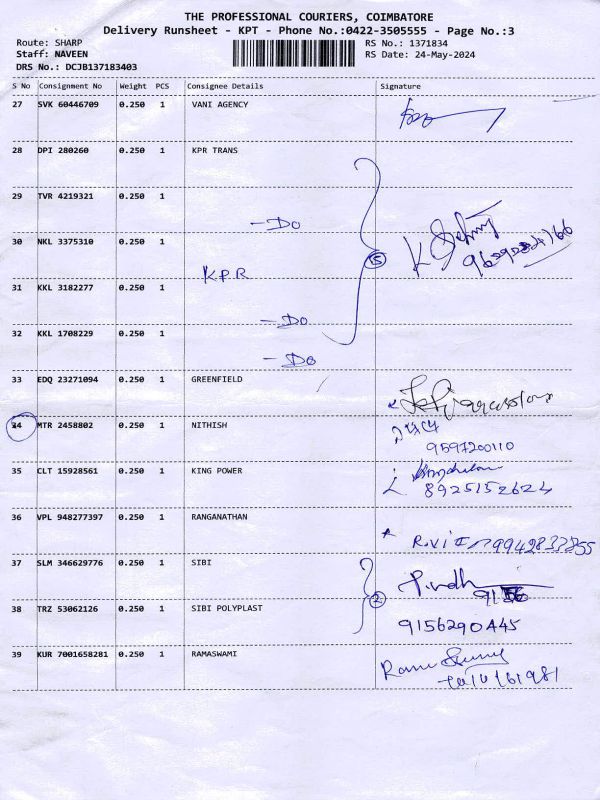 THE PROFESSIONAL COURIERS, COIMBATORE
Delivery Runsheet - KPT - Phone No.:0422-3505555 - Page No.:3
Route: SHARP
Staff: NAVEEN
DRS No.: DCJB137183403
RS No.: 1371834
RS Date: 24-May-2024
S No Consignment No Weight PCS Consignee Details Signature
27 SVK 60446709 0.250 1 VANI AGENCY
28 DPI 280260 0.250 1 KPR TRANS
29 TVR 4219321 0.250 1
- Do
30 NKL 3375310 0.250 1
K.P.R
5
31 KKL 3182277 0.250 1
- Do
32 KKL 1708229 0.250 1
- Do
33 EDQ 23271094 0.250 1 GREENFIELD
34 MTR 2458802 0.250 1 NITHISH
9597200110
35 CLT 15928561 0.250 1 KING POWER
8925152624
36 VPL 948277397 0.250 1 RANGANATHAN
37 SLM 346629776 0.250 1 SIBI
2
38 TRZ 53062126 0.250 1 SIBI POLYPLAST
9156290445
39 KUR 7001658281 0.250 1 RAMASWAMI